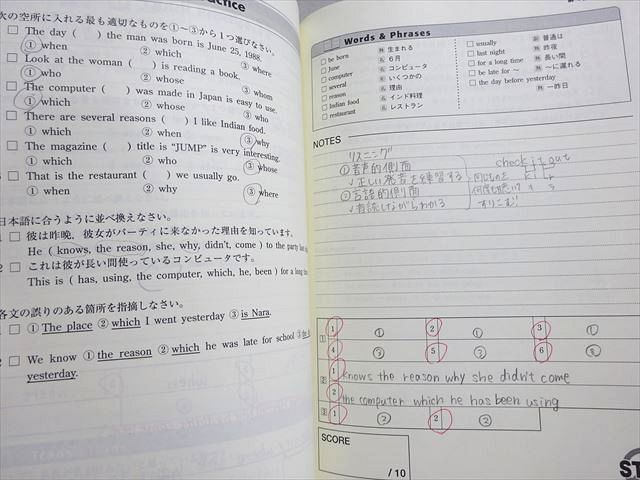 actice
次の空所に入れる最も適切なものを①～③から1つ選びなさい。
□ The day (　) the man was born is June 25, 1988.
① when ② which ③ where
□ Look at the woman (　) is reading a book.
① who ② whose ③ whom
□ The computer (　) was made in Japan is easy to use.
① which ② whose ③ who
□ There are several reasons (　) I like Indian food.
① which ② when ③ why
□ The magazine (　) title is “JUMP” is very interesting.
① which ② who ③ whose
□ That is the restaurant (　) we usually go.
① when ② why ③ where
日本語に合うように並べ換えなさい。
1 □ 彼は昨晩，彼女がパーティに来なかった理由を知っています。
He ( knows, the reason, she, why, didn't, come ) to the party last
2 □ これは彼が長い間使っているコンピュータです。
This is ( has, using, the computer, which, he, been ) for a long time
各文の誤りのある箇所を指摘しなさい。
1 □ ① The place ② which I went yesterday ③ is Nara.
2 □ We know ① the reason ② which he was late for school ③
yesterday.
Words & Phrases
□ be born 生まれる
□ June 6月
□ computer コンピュータ
□ several いくつかの
□ reason 理由
□ Indian food インド料理
□ restaurant レストラン
□ usually 普通は
□ last night 昨夜
□ for a long time 長い間
□ be late for ～ ～に遅れる
□ the day before yesterday
一昨日
NOTES
リスニング
①音声的側面
正しい発音を練習する
②言語的側面
音読しながらわかる
check it out
すりこむ
1 1 ① 2 ① 3 ①
4 ③ 5 ③ 6 ③
2 1 knows the reason why she didn't come
2 the computer which he has been using
3 1 ② 2 ②
SCORE
/ 10
ST